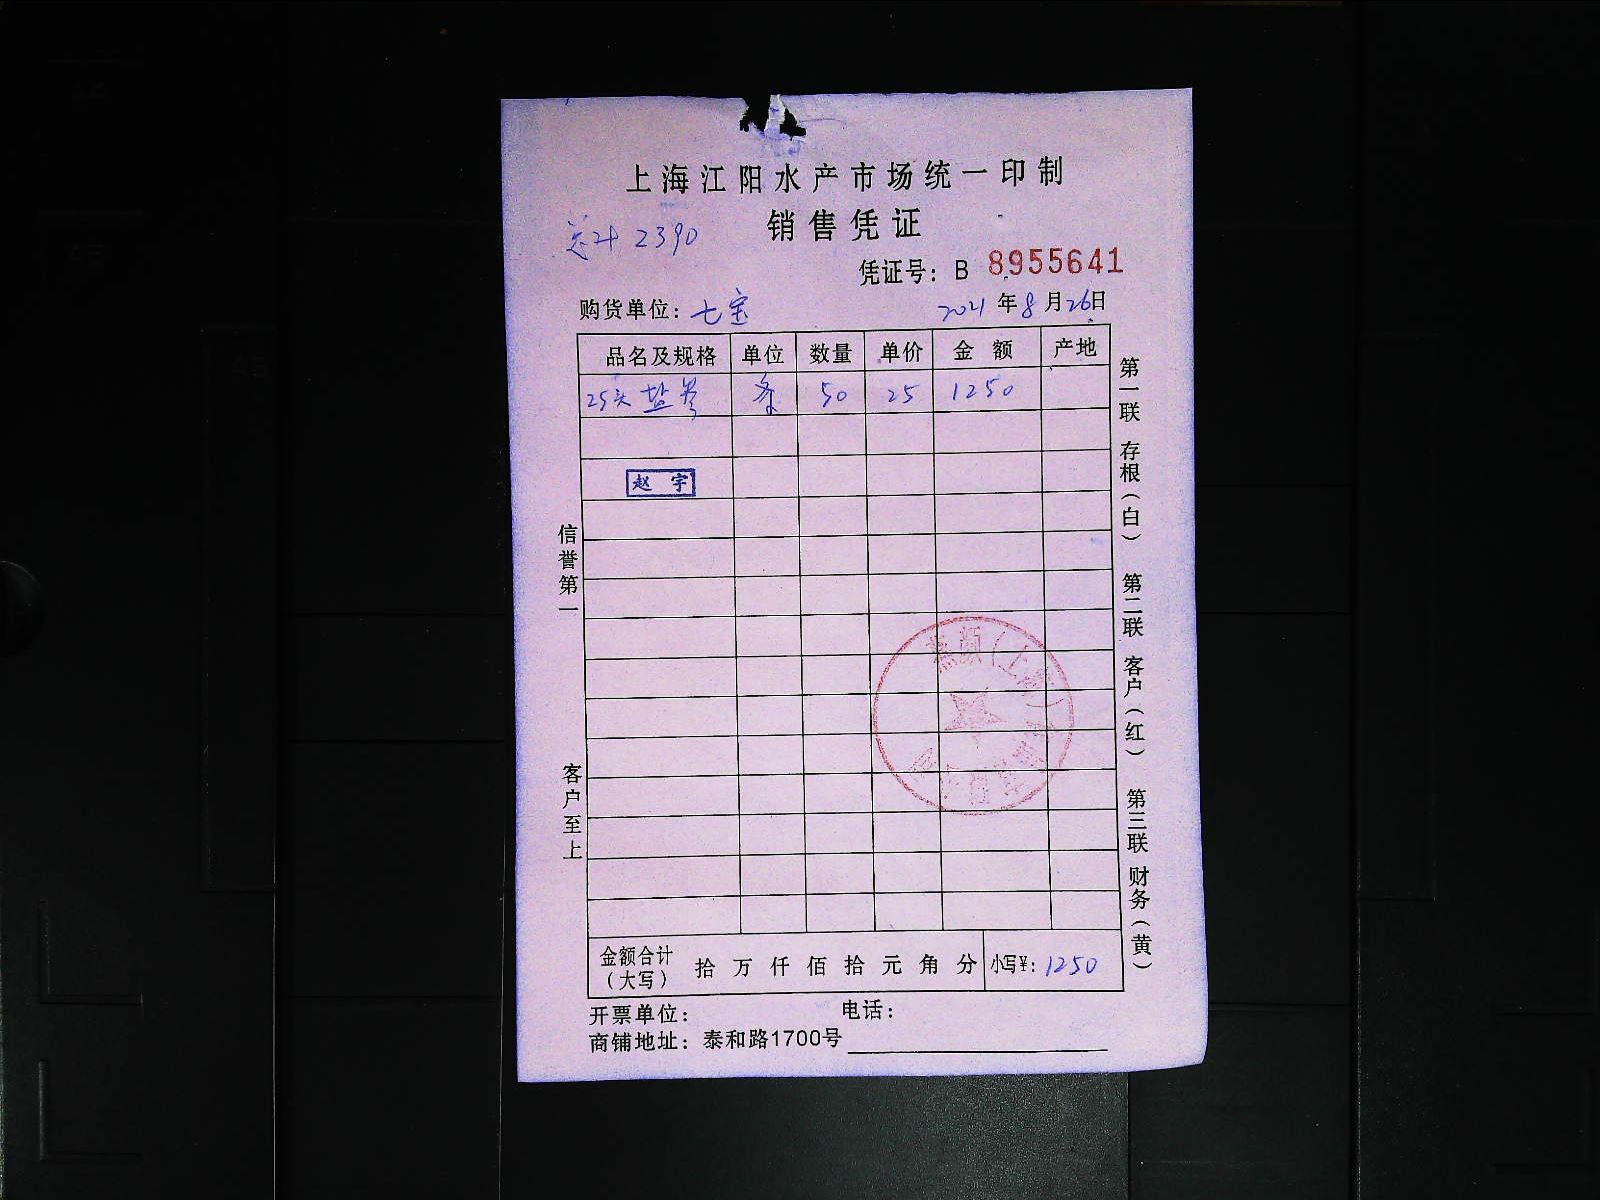 上海江阳水产市场统一印制
销售凭证
总计 2390
凭证号：B 8955641
购货单位：七宝 2021年8月26日
品名及规格 单位 数量 单价 金额 产地
25头盐参 条 50 25 1250
赵宇
信誉第一
客户至上
第一联 存根（白） 第二联 客户（红） 第三联 财务（黄）
金额合计（大写） 拾 万 仟 佰 拾 元 角 分 小写¥：1250
开票单位： 电话：
商铺地址：泰和路1700号